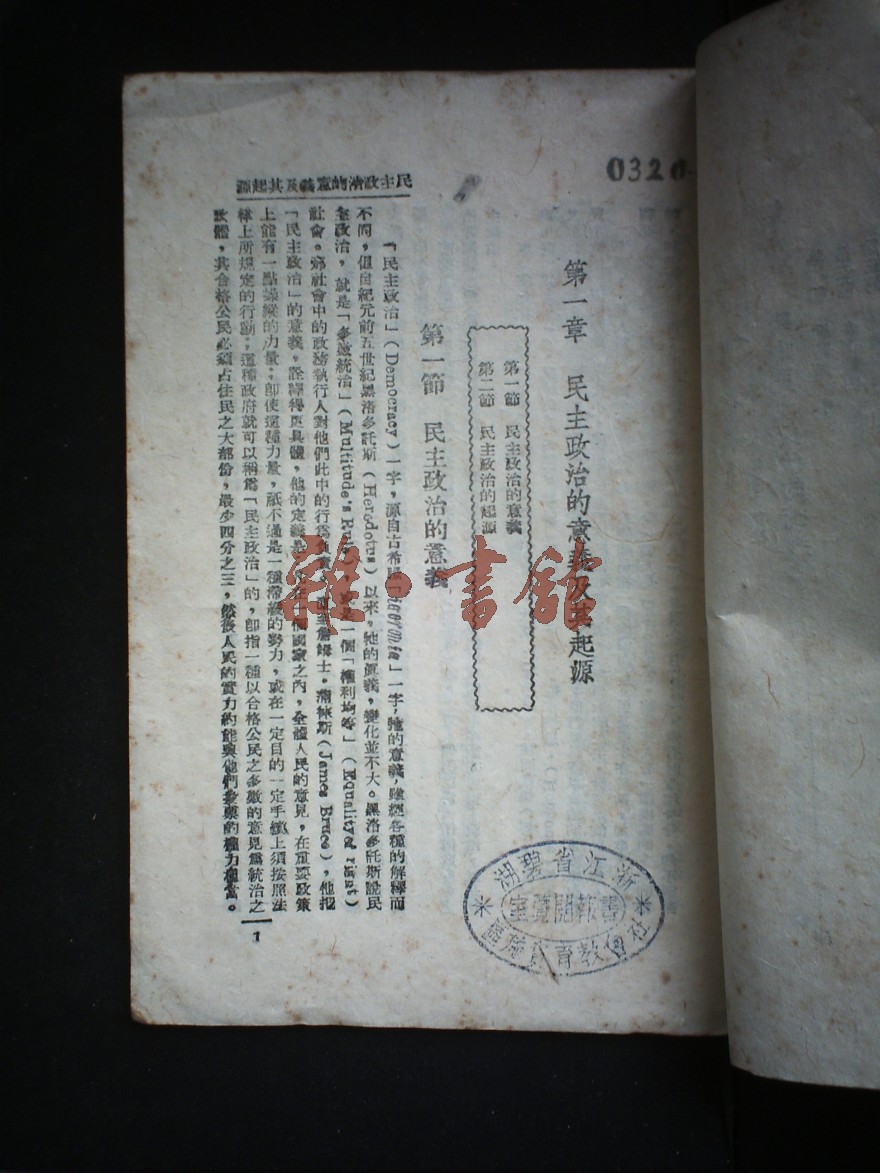 032
第一章　民主政治的意義及其起源
第一節　民主政治的意義
第二節　民主政治的起源
第一節　民主政治的意義
「民主政治」(Democracy)一字，源自古希臘「」一字，牠的意義，雖經各種的解釋而
不同，但自紀元前五世紀黑洛多託斯(Herodotus)以來，牠的眞義，變化並不大。黑洛多託斯說民
主政治，就是「多數統治」(Multitude's Rule)，一個「權利均等」(Equality of right)
社會。那社會中的政務執行人對他們此中的行爲負責。詹姆士·蒲徠斯(James Bruce)，他把
「民主政治」的意義，詮釋得更具體，他的定義是：在一個國家之內，全體人民的意見，在重要政策
上能有一點操縱的力量；卽使這種力量，祇不過是一種滯緩的勢力，或在一定目的一定手續上須按照法
律上所規定的行動；這種政府就可以稱爲「民主政治」的，卽指一種以合格公民之多數的意見爲統治之
政體，其合格公民必須占住民之大部份，最少四分之三，然後人民的實力約能與他們投票的權力相當。
民主政治的意義及其起源
1
浙江省碧湖
書報閱覽室
社會教育施區
雜·書舘